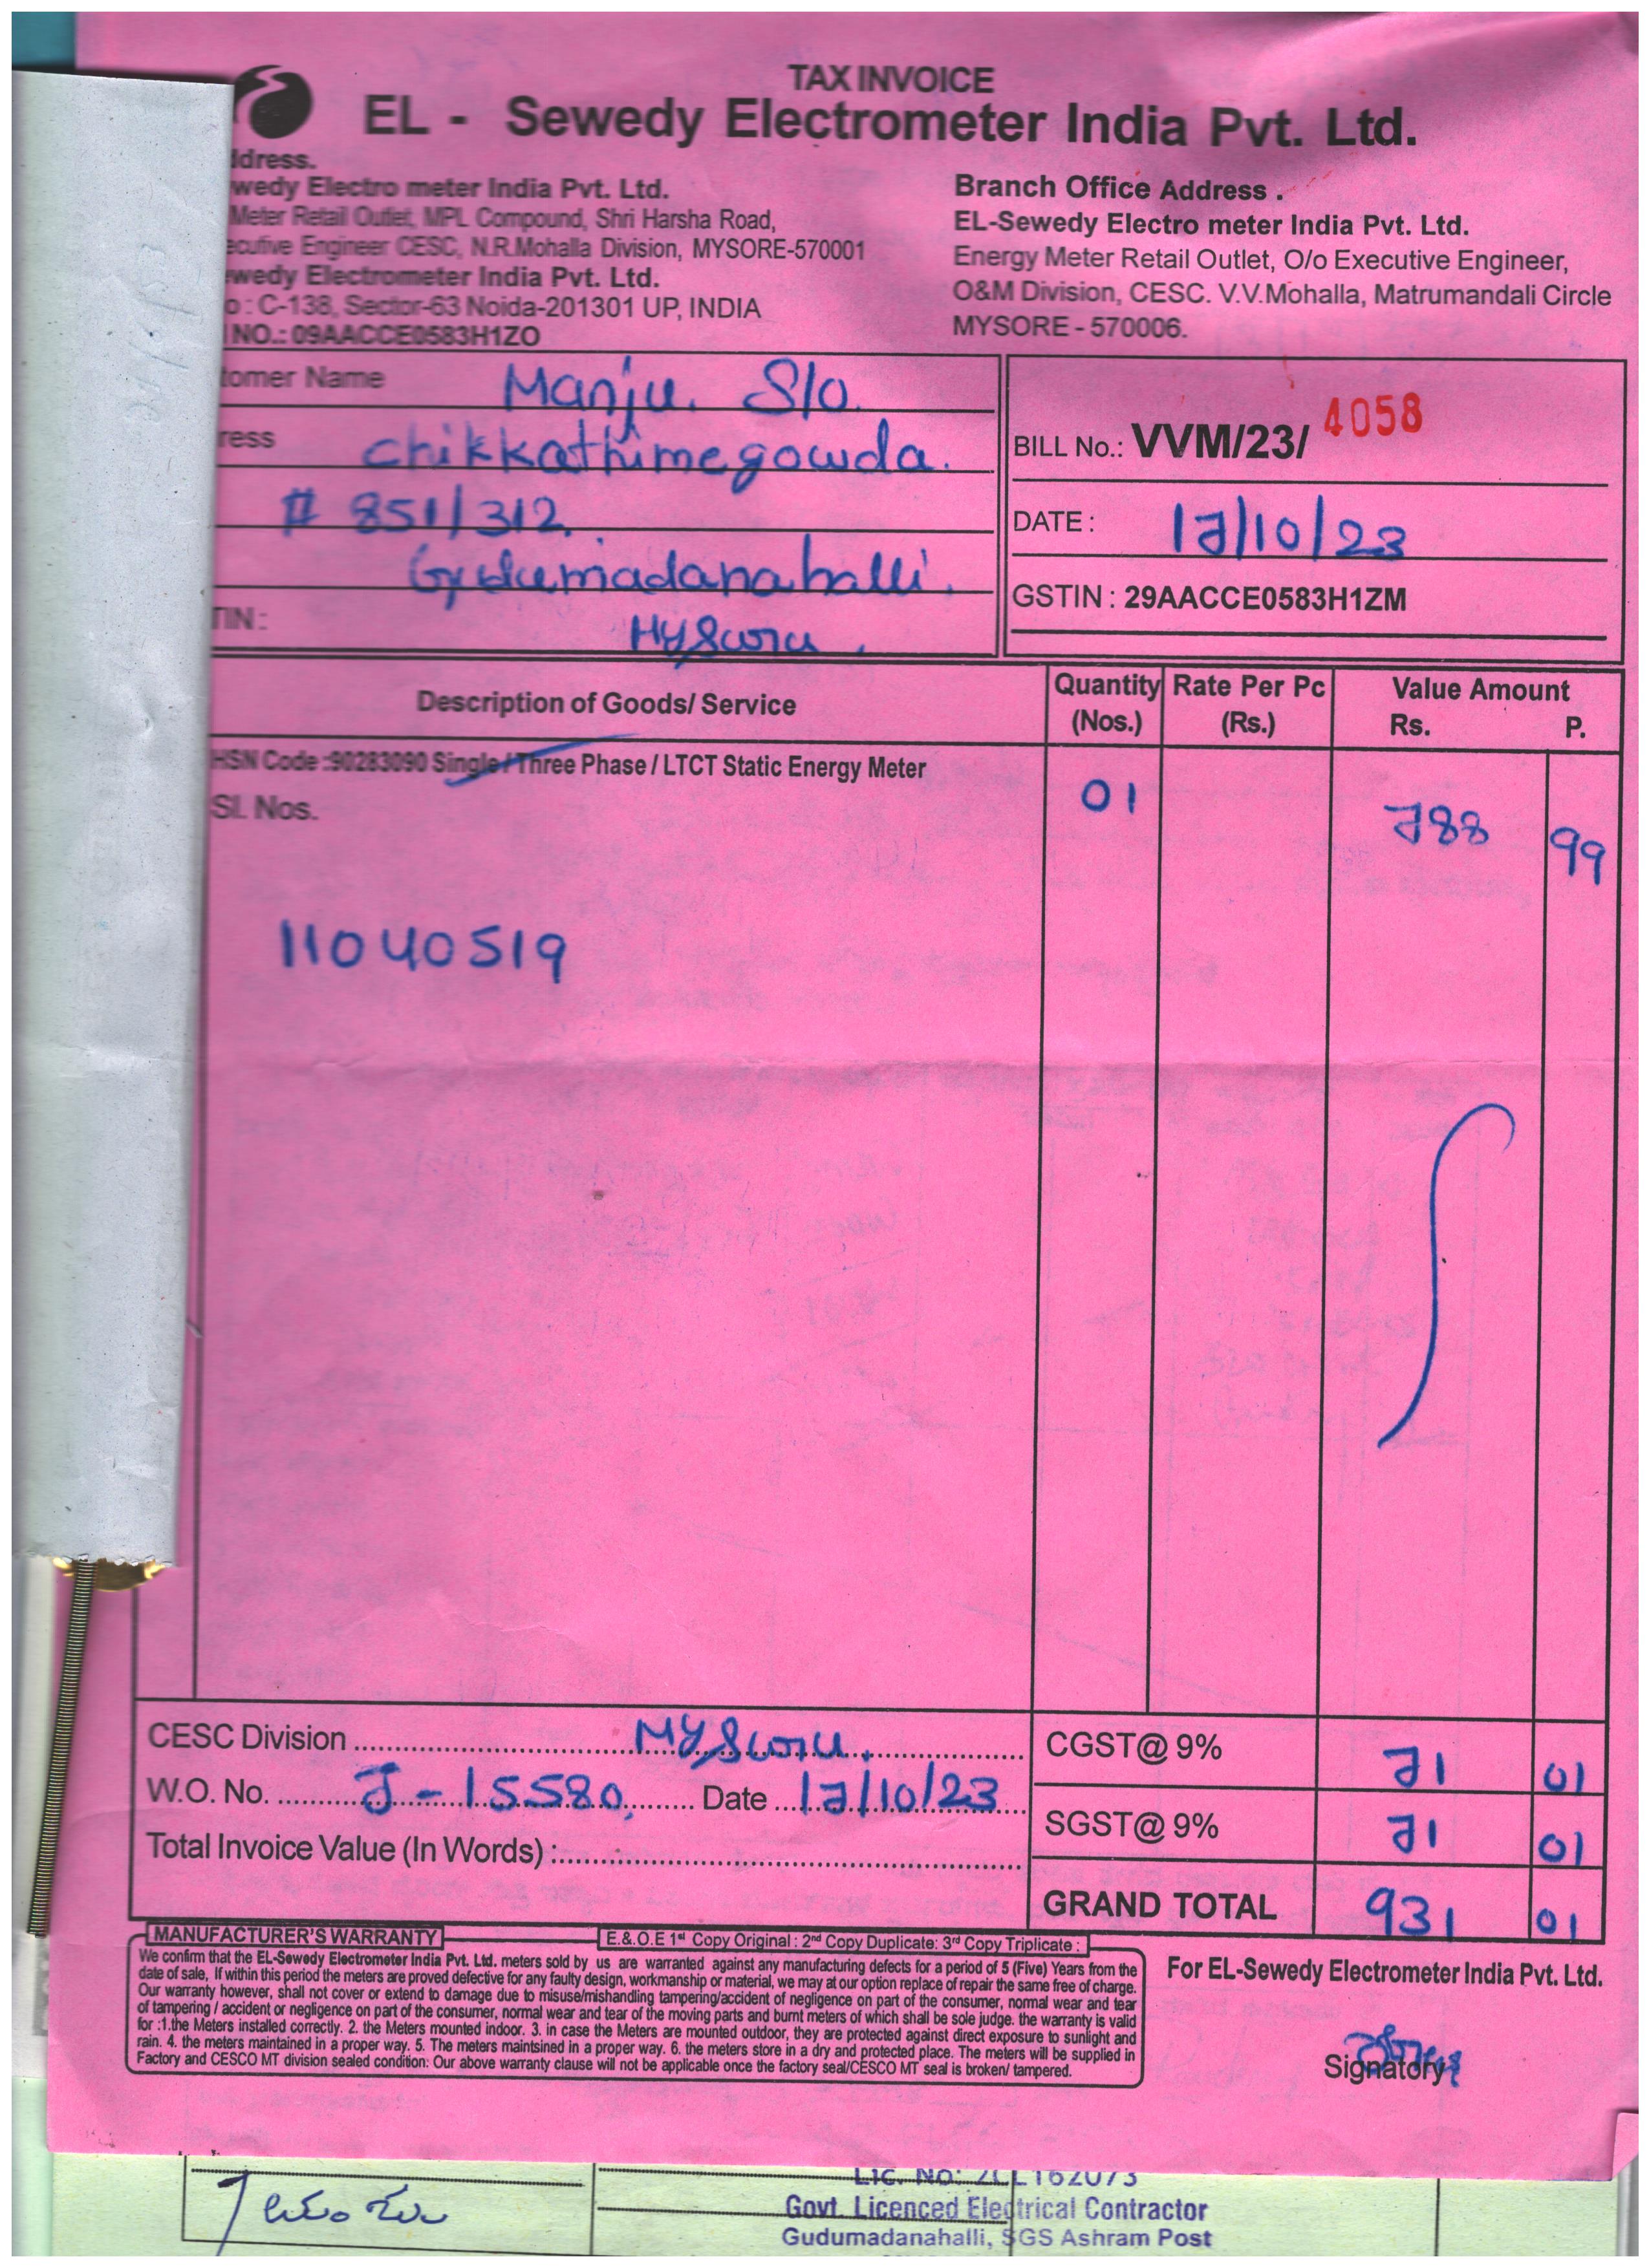 TAX INVOICE
EL - Sewedy Electrometer India Pvt. Ltd.
ddress.
wedy Electro meter India Pvt. Ltd.
Meter Retail Outlet, MPL Compound, Shri Harsha Road,
ecutive Engineer CESC, N.R.Mohalla Division, MYSORE-570001
wedy Electrometer India Pvt. Ltd.
o : C-138, Sector-63 Noida-201301 UP, INDIA
NO.: 09AACCE0583H1ZO
Branch Office Address .
EL-Sewedy Electro meter India Pvt. Ltd.
Energy Meter Retail Outlet, O/o Executive Engineer,
O&M Division, CESC. V.V.Mohalla, Matrumandali Circle
MYSORE - 570006.
tomer Name Manju. S/o.
ress chikkathimegowda.
# 851/312.
Gudumadanahalli.
TIN : Mysuru.
BILL No.: VVM/23/ 4058
DATE : 17/10/23
GSTIN : 29AACCE0583H1ZM
Description of Goods/ Service Quantity (Nos.) Rate Per Pc (Rs.) Value Amount Rs. P.
HSN Code :90283090 Single / Three Phase / LTCT Static Energy Meter 01 788 99
Sl. Nos.
11040519
CESC Division Mysuru. CGST@ 9% 71 01
W.O. No. J-15580. Date 17/10/23
SGST@ 9% 71 01
Total Invoice Value (In Words) :
GRAND TOTAL 931 01
MANUFACTURER'S WARRANTY E.& O.E 1st Copy Original : 2nd Copy Duplicate: 3rd Copy Triplicate :
We confirm that the EL-Sewedy Electrometer India Pvt. Ltd. meters sold by us are warranted against any manufacturing defects for a period of 5 (Five) Years from the
date of sale, If within this period the meters are proved defective for any faulty design, workmanship or material, we may at our option replace of repair the same free of charge.
Our warranty however, shall not cover or extend to damage due to misuse/mishandling tampering/accident of negligence on part of the consumer, normal wear and tear
of tampering / accident or negligence on part of the consumer, normal wear and tear of the moving parts and burnt meters of which shall be sole judge. the warranty is valid
for :1.the Meters installed correctly. 2. the Meters mounted indoor. 3. in case the Meters are mounted outdoor, they are protected against direct exposure to sunlight and
rain. 4. the meters maintained in a proper way. 5. The meters maintsined in a proper way. 6. the meters store in a dry and protected place. The meters will be supplied in
Factory and CESCO MT division sealed condition: Our above warranty clause will not be applicable once the factory seal/CESCO MT seal is broken/ tampered.
For EL-Sewedy Electrometer India Pvt. Ltd.
Signatory
Govt. Licenced Electrical Contractor
Gudumadanahalli, SGS Ashram Post